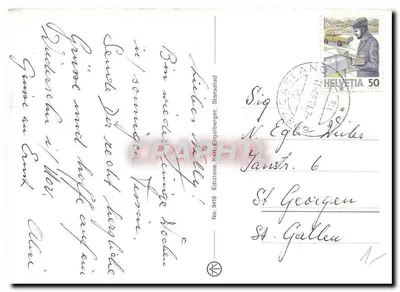 Lieber Willy!
Bin wieder einige Wochen
im sonnigen Tessin.
Sende Dir recht herzliche
Grüsse und hoffe auf ein
Wiedersehn im Nov.
Grüsse an Ernst
No. 9416 Edizione Karl Engelberger, Stansstad
HELVETIA 50
Sig
N. Egli
6
St Georgen
St. Gallen
1-